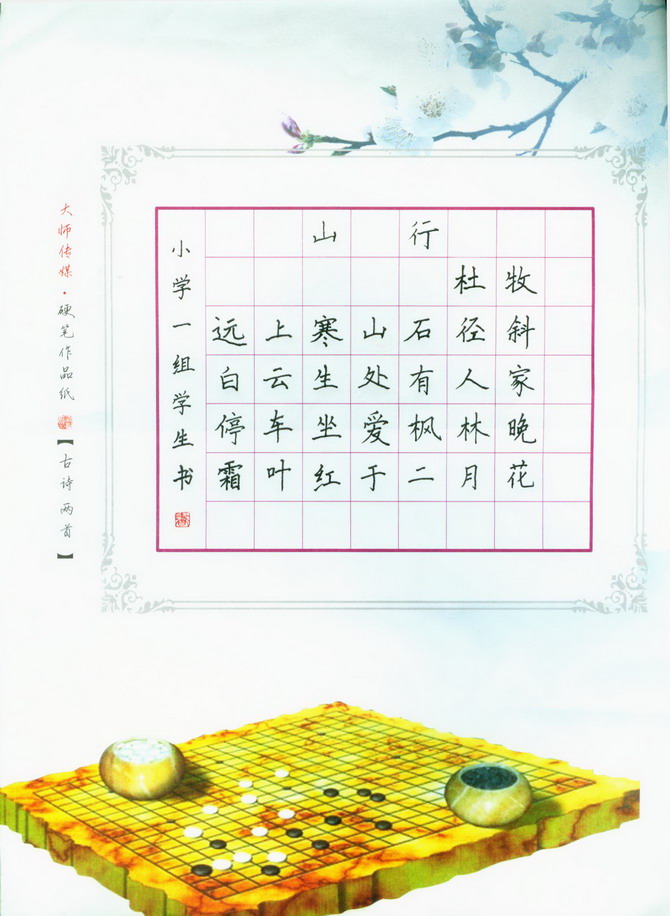 山行
杜牧
远上寒山石径斜
白云生处有人家
停车坐爱枫林晚
霜叶红于二月花
小学一组学生书
大师传媒·硬笔作品纸
【古诗两首】